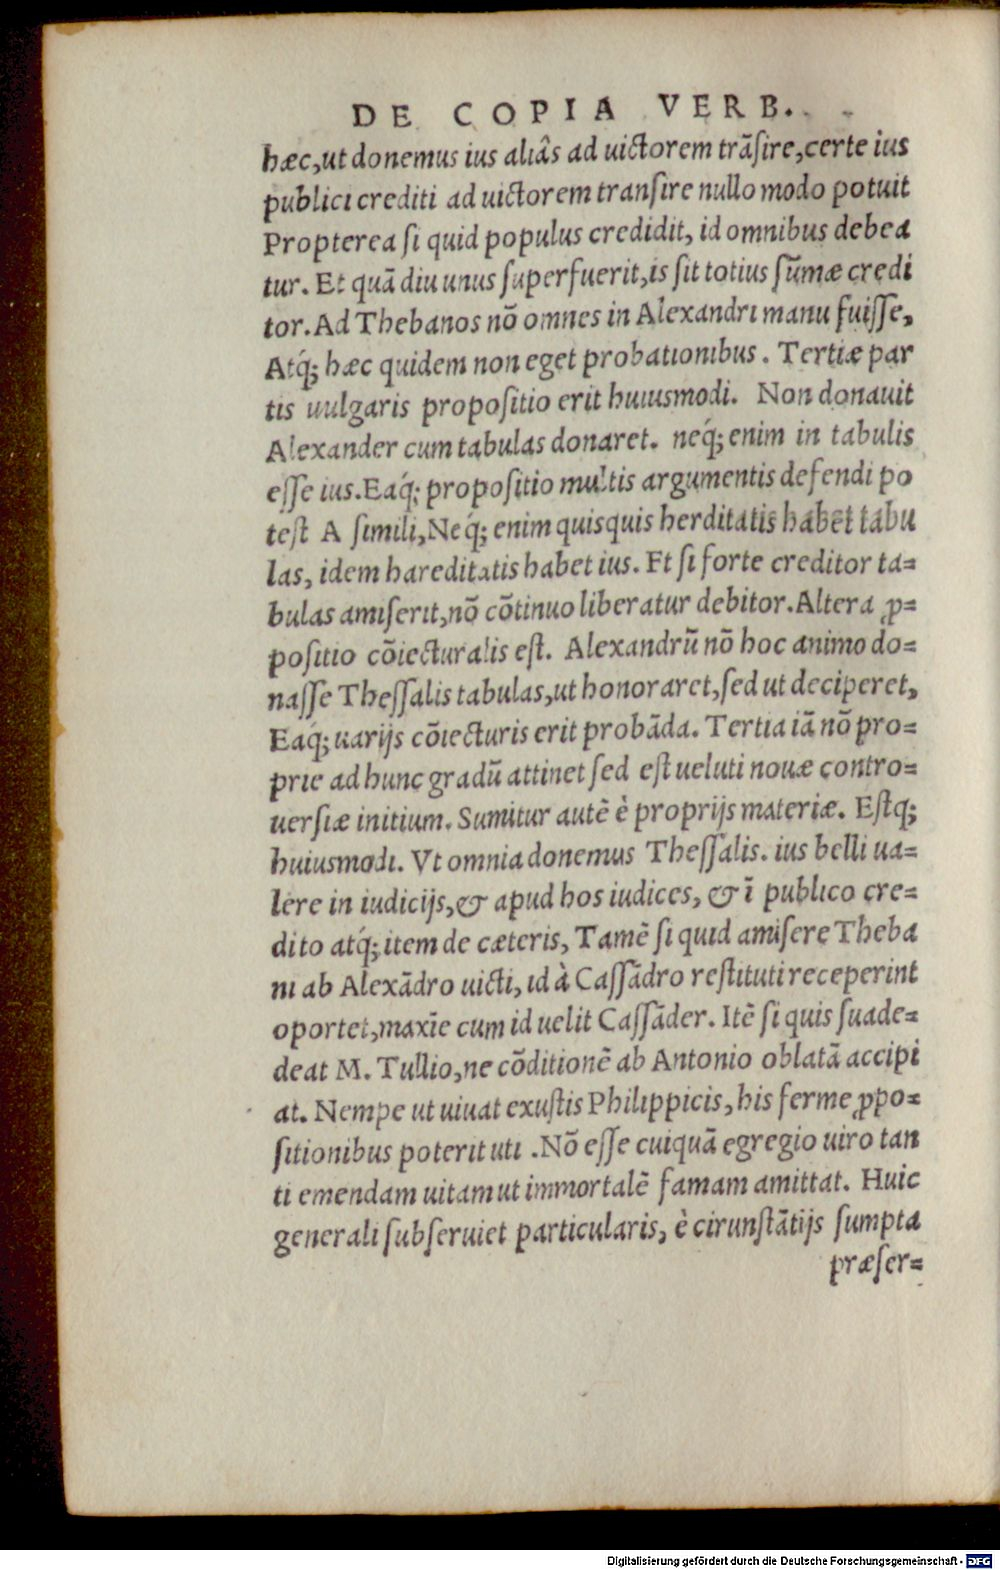 DE COPIA VERB.
hæc, ut donemus ius aliâs ad uictorem trāsire, certe ius
publici crediti ad uictorem transire nullo modo potuit
Propterea si quid populus credidit, id omnibus debea
tur. Et quā diu unus superfuerit, is sit totius sūmæ credi
tor. Ad Thebanos nō omnes in Alexandri manu fuisse,
Atq́; hæc quidem non eget probationibus. Tertiæ par
tis uulgaris propositio erit huiusmodi. Non donauit
Alexander cum tabulas donaret. neq́; enim in tabulis
esse ius. Eaq́; propositio multis argumentis defendi po
test A simili, Neq́; enim quisquis herditatis habet tabu
las, idem hareditatis habet ius. Et si forte creditor ta=
bulas amiserit, nō cōtinuo liberatur debitor. Altera ꝓ=
positio cōiecturalis est. Alexandrū nō hoc animo do=
nasse Thessalis tabulas, ut honoraret, sed ut deciperet,
Eaq́; uarijs cōiecturis erit probāda. Tertia iā nō pro=
prie ad hunc gradū attinet sed est ueluti nouæ contro=
uersiæ initium. Sumitur autē è proprijs materiæ. Estq;
huiusmodi. Vt omnia donemus Thessalis. ius belli ua=
lere in iudicijs, & apud hos iudices, & ī publico cre=
dito atq́; item de cæteris, Tamē si quid amisere Theba
ni ab Alexādro uicti, id à Cassādro restituti receperint
oportet, maxīe cum id uelit Cassāder. Itē si quis suade=
deat M. Tullio, ne cōditionē ab Antonio oblatā accipi
at. Nempe ut uiuat exustis Philippicis, his ferme ꝓpo=
sitionibus poterit uti. Nō esse cuiquā egregio uiro tan
ti emendam uitam ut immortalē famam amittat. Huic
generali subseruiet particularis, è cirunstātijs sumpta
præser=
Digitalisierung gefördert durch die Deutsche Forschungsgemeinschaft - DFG